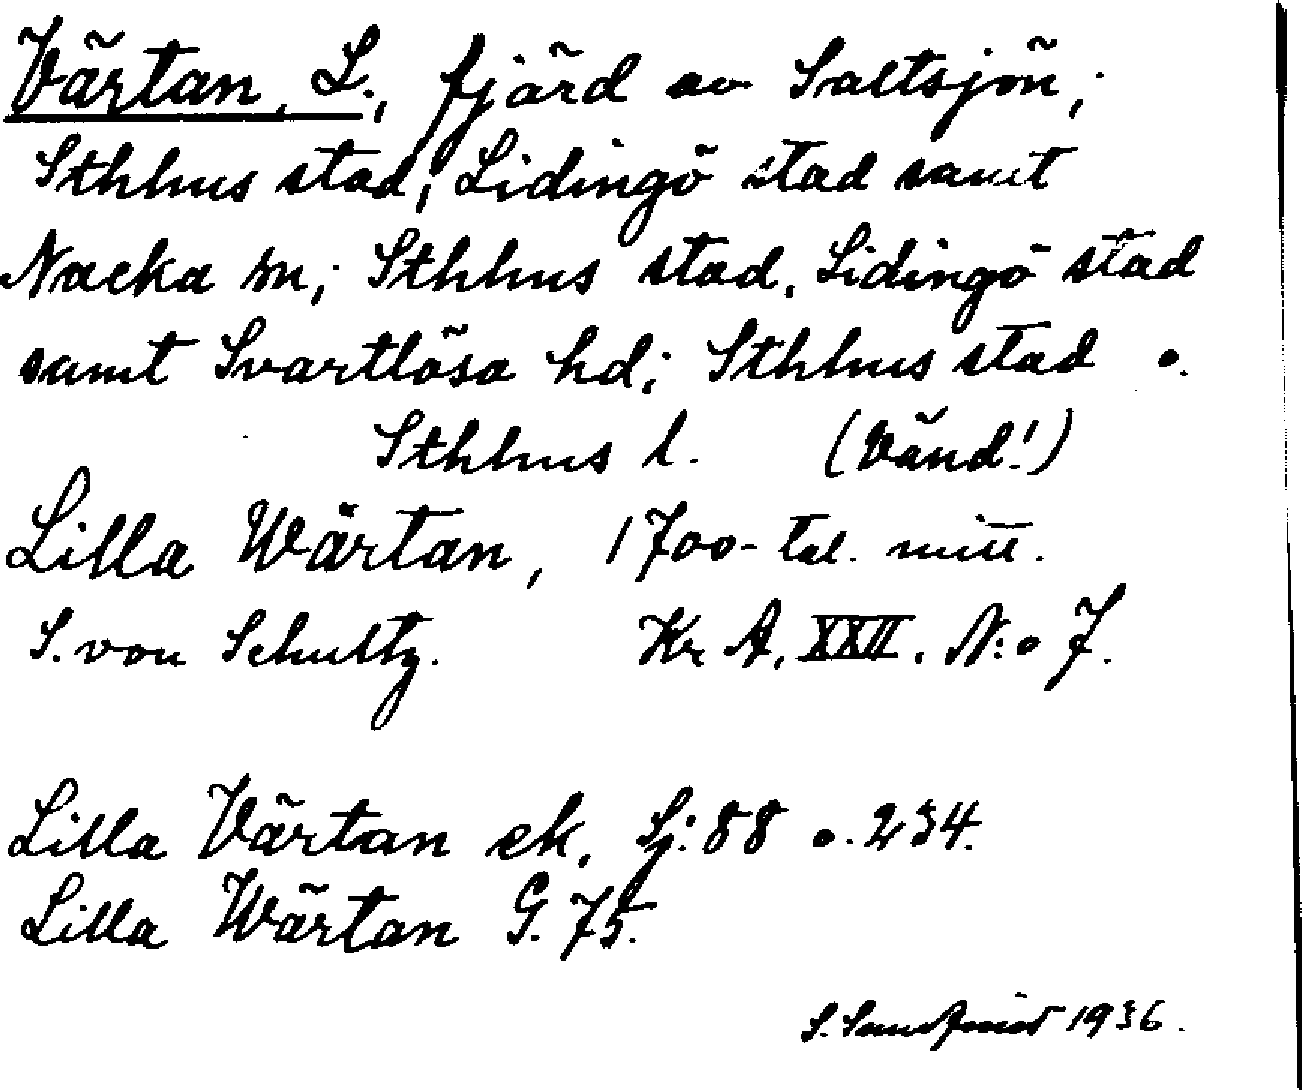 Värtan, L., fjärd av Saltsjön;
Sthlms stad, Lidingö stad samt
Nacka sn; Sthlms stad, Lidingö stad
samt Svartlösa hd; Sthlms stad o.
Sthlms l. (Vänd!)
Lilla Wärtan, 1700-tal. mitt.
S. von Schultz. Kr A. XXII. N:o 7.
Lilla Värtan ek. Lj: 88 o. 234.
Lilla Wärtan G. 75.
S. 1936.